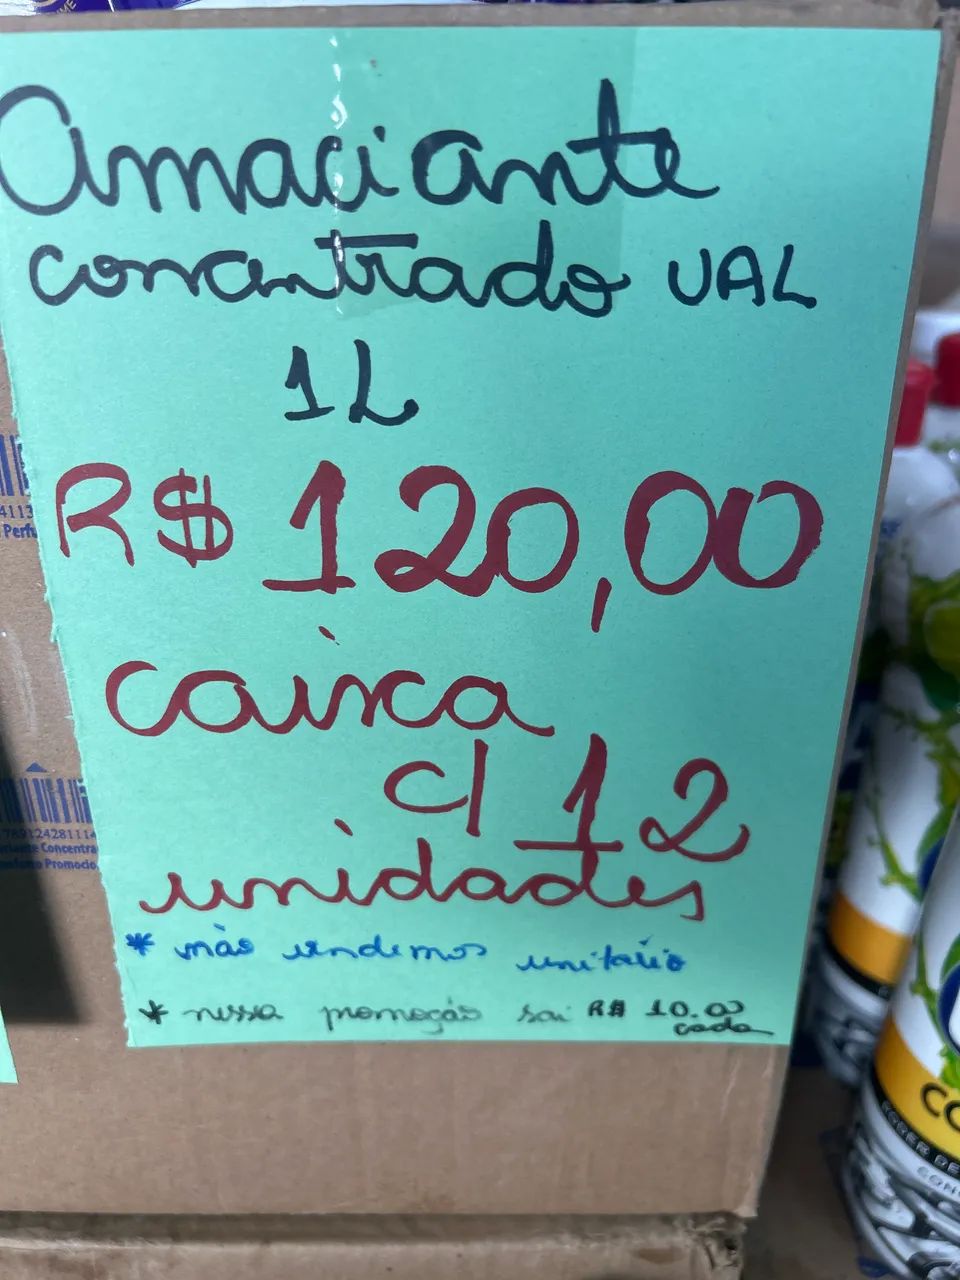 Amaciante
concentrado UAL
1L
R$ 120,00
caixa
c/ 12
unidades
* não vendemos unitário
* nessa promoção sai R$ 10.00
cada
4113
Perfu
789124281114
Concentra
Promocio
CO